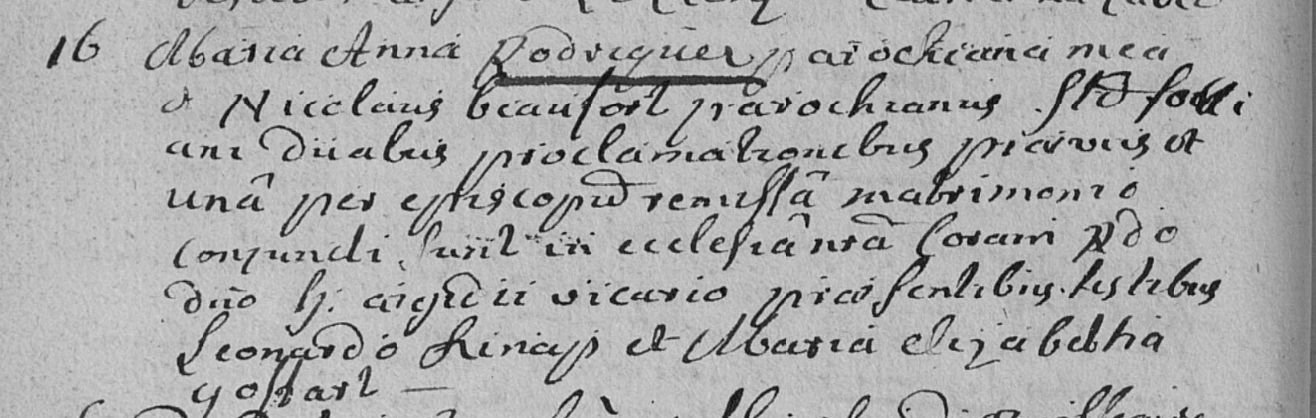 16 Maria Anna Rodriguez parochiana mea
& Nicolaus beaufort parochianus Sti foill
ani duabus proclamationibus praeviis et
unâ per episcopũ remissâ matrimonio
conjuncti sunt in ecclesiâ nrã Coram R do
dno h. aigidii vicario praesentibus testibus
Leonardo kinap et Maria elizabetha
goffart —